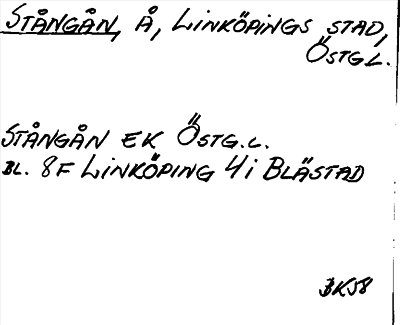 STÅNGÅN, Å, LINKÖPINGS STAD,
ÖSTGL.
STÅNGÅN EK ÖSTG.L.
BL. 8F LINKÖPING 4i BLÄSTAD
BKJ8